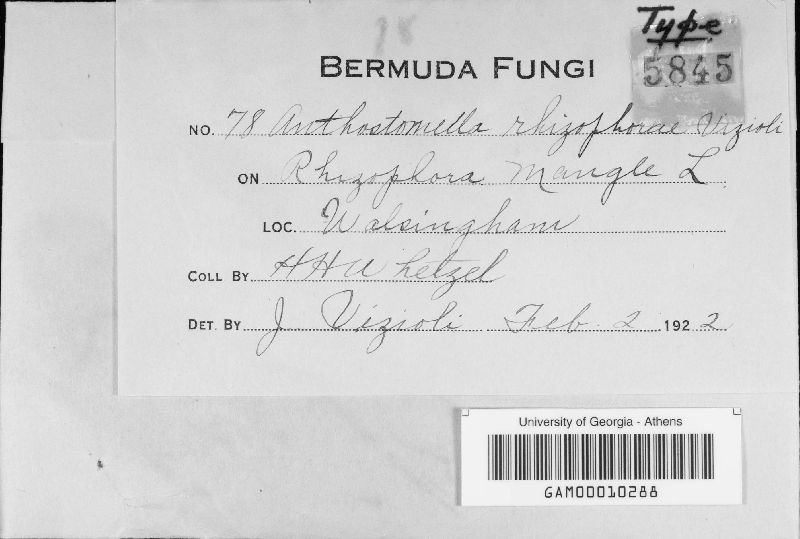 Type
78
BERMUDA FUNGI
5845
NO. 78 Anthostomella rhizophorae Vizioli
ON Rhizophora Mangle L
LOC. Walsingham
COLL BY HH Whetzel
DET. BY J Vizioli Feb. 2 1922
University of Georgia - Athens
GAM00010288